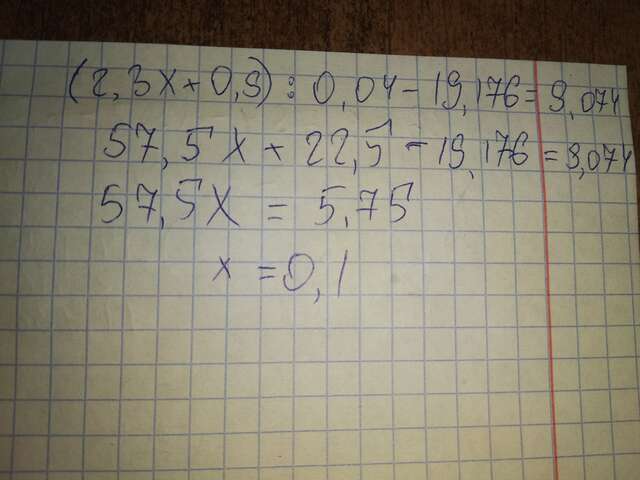 (2,3x+0,9):0,04-19,176=9,074
57,5x+22,5-19,176=9,074
57,5x=5,75
x=0,1